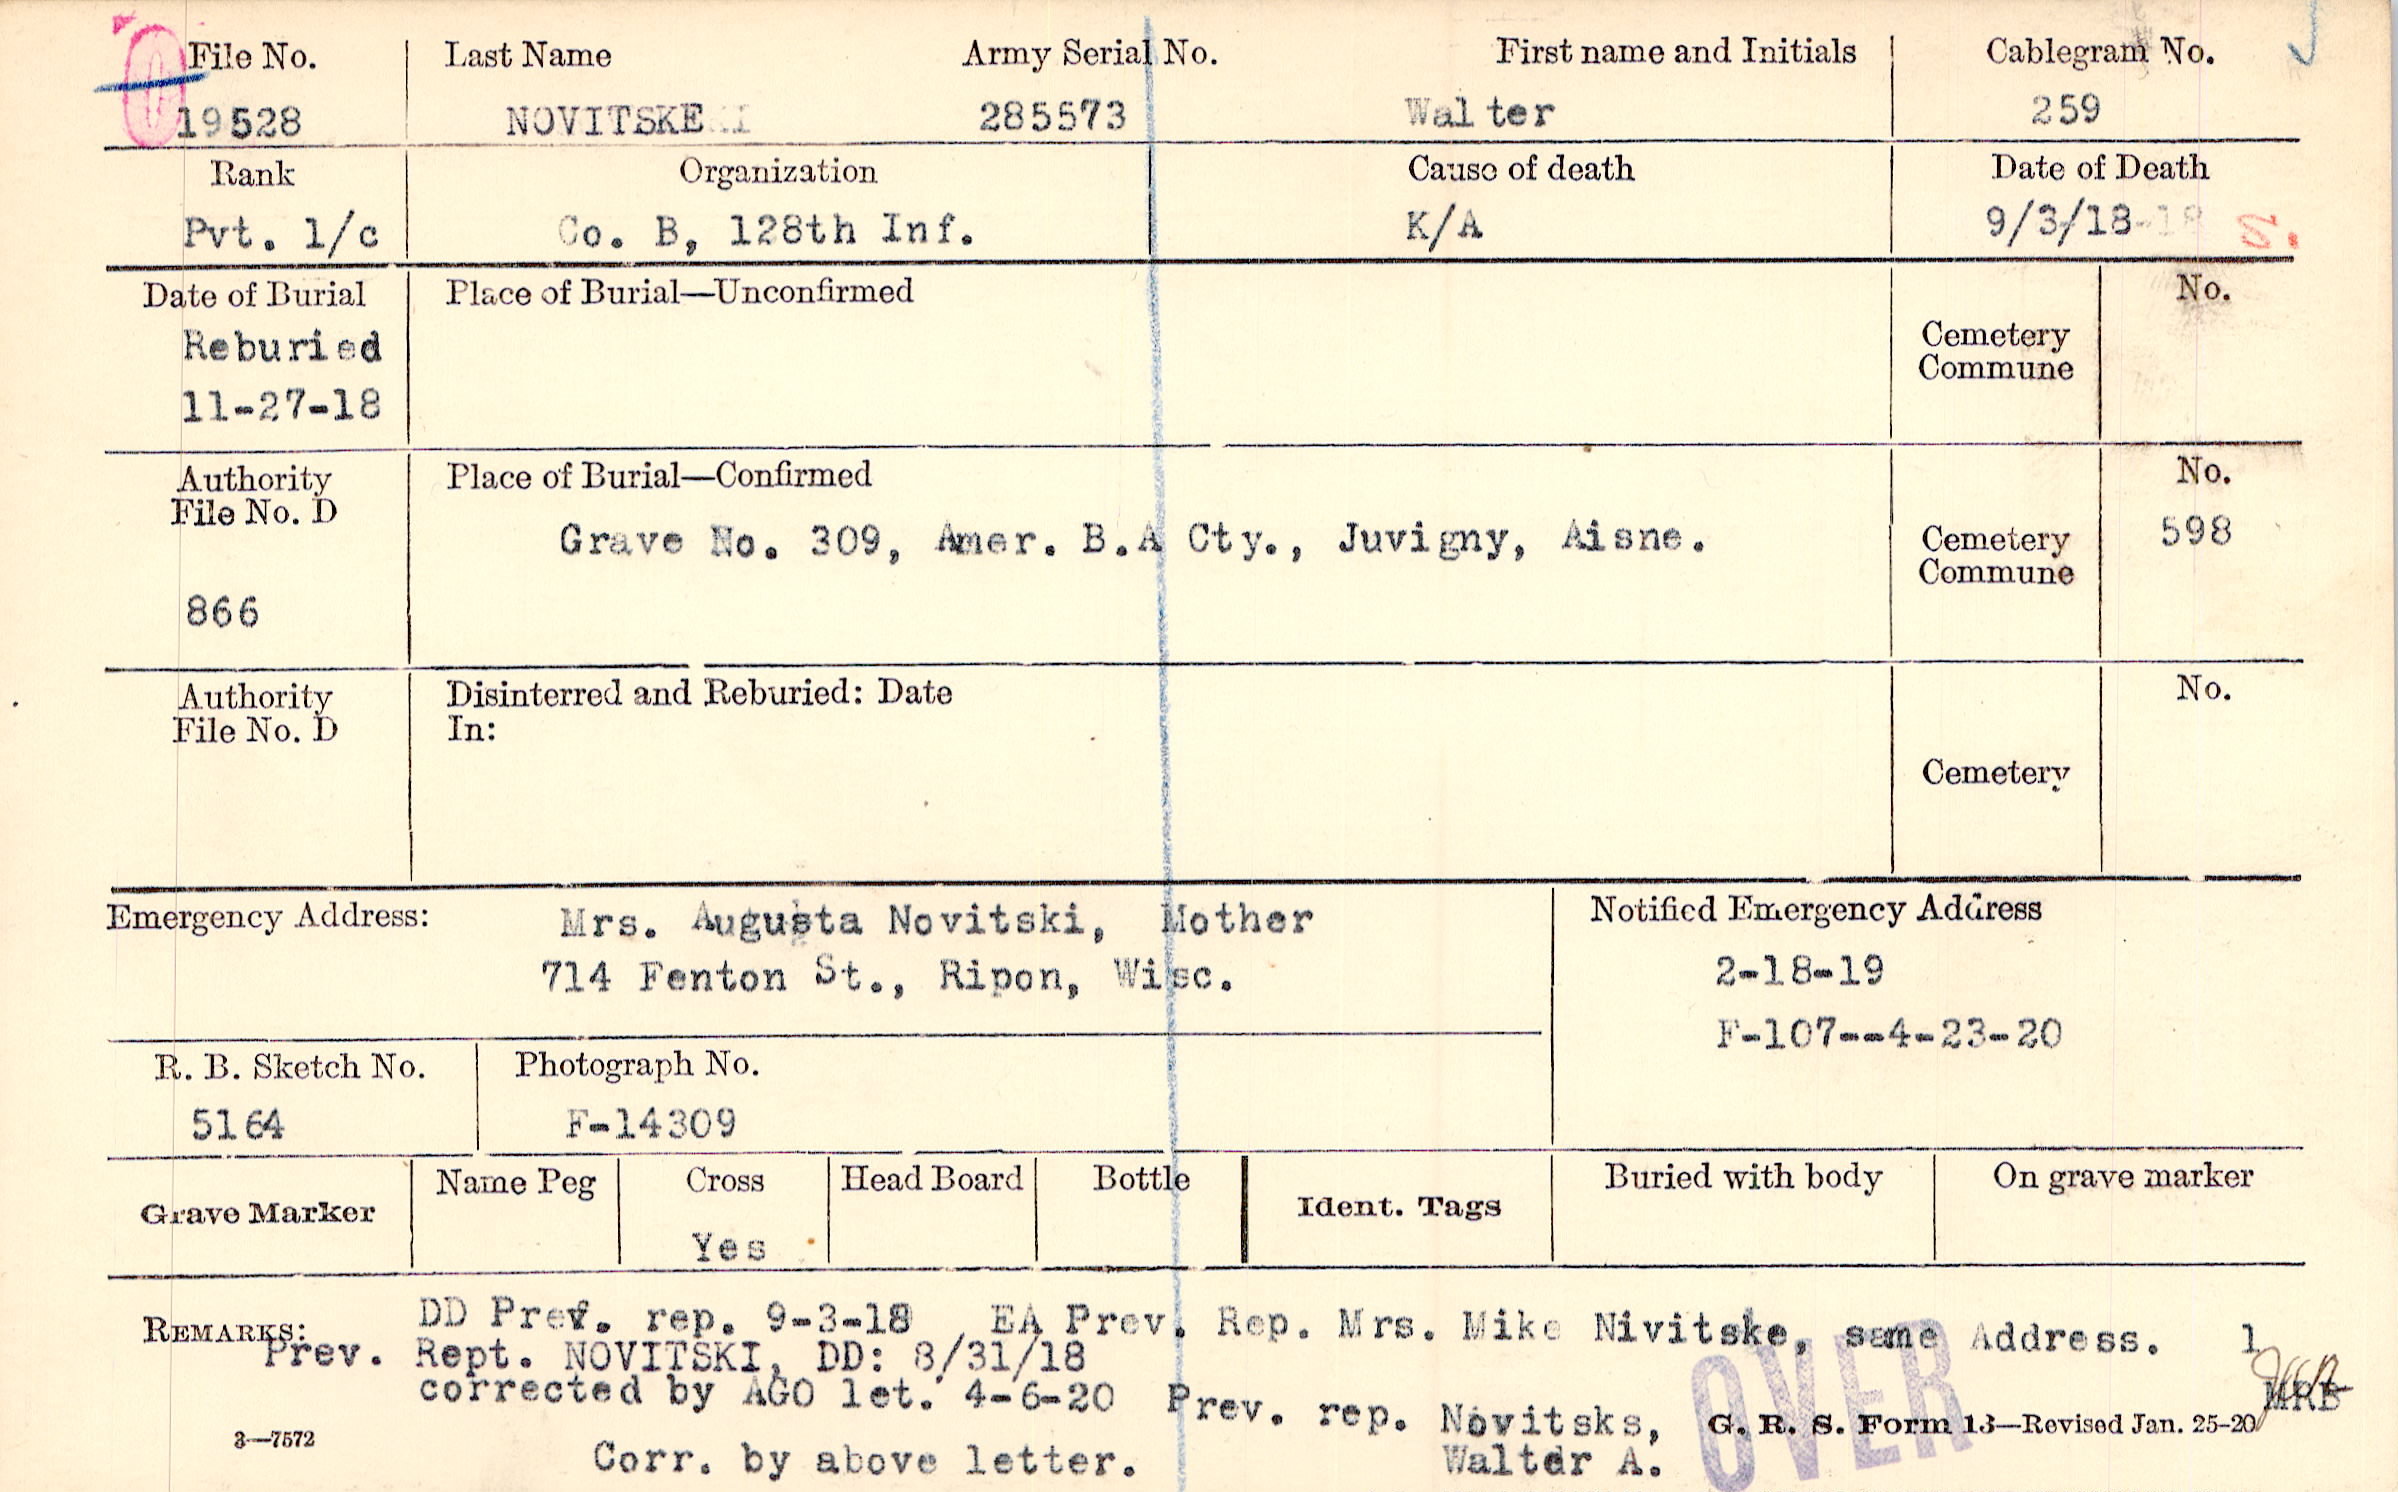 File No. Last Name Army Serial No. First name and Initials Cablegram No.
19528 NOVITSKE 285573 Walter 259
Rank Organization Cause of death Date of Death
Pvt. 1/c Co. B, 128th Inf. K/A 9/3/18 S.
Date of Burial Place of Burial—Unconfirmed No.
Reburied
11-27-18
Cemetery
Commune
Authority
File No. D
866
Place of Burial—Confirmed No.
Grave No. 309, Amer. B.A Cty., Juvigny, Aisne.
Cemetery
Commune
598
Authority
File No. D
Disinterred and Reburied: Date
In:
No.
Cemetery
Emergency Address: Mrs. Augusta Novitski, Mother
714 Fenton St., Ripon, Wisc.
Notified Emergency Address
2-18-19
F-107--4-23-20
R. B. Sketch No. Photograph No.
5164 F-14309
Grave Marker Name Peg Cross Head Board Bottle Ident. Tags Buried with body On grave marker
Yes
REMARKS: DD Prev. rep. 9-3-18 EA Prev. Rep. Mrs. Mike Nivitske, same Address. 1
Prev. Rept. NOVITSKI, DD: 8/31/18
corrected by AGO let. 4-6-20 Prev. rep. Novitsks,
Walter A.
MRB
3—7572
G. R. S. Form 13—Revised Jan. 25-20
Corr. by above letter.
OVER